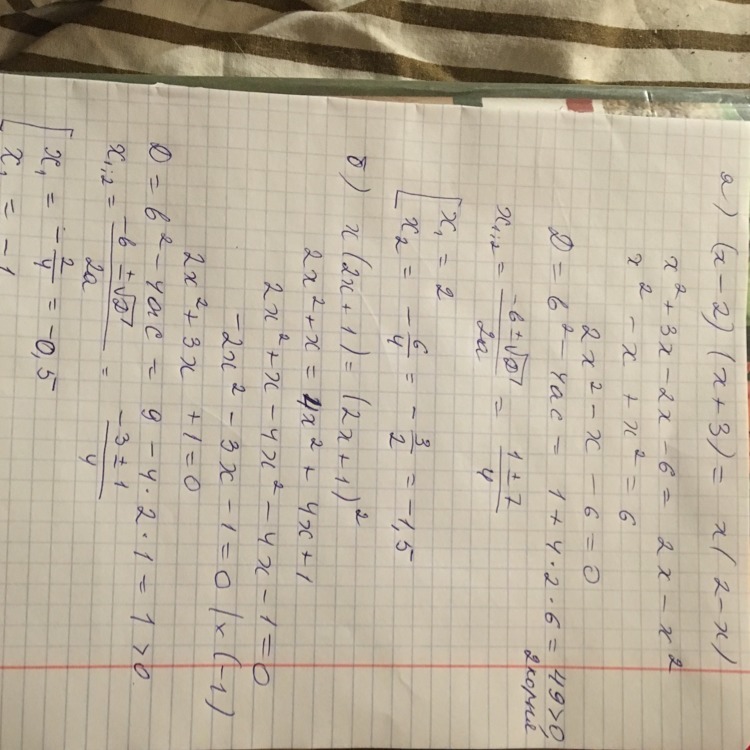 а) (x-2)(x+3) = x(2-x)
x² + 3x - 2x - 6 = 2x - x²
x² - x + x² = 6
2x² - x - 6 = 0
D = b² - 4ac = 1 + 4·2·6 = 49 > 0
2 корня
x₁;₂ = (-b ± √D)/2a = (1 ± 7)/4
[ x₁ = 2
x₂ = -6/4 = -3/2 = -1,5
б) x(2x+1) = (2x+1)²
2x² + x = 4x² + 4x + 1
2x² + x - 4x² - 4x - 1 = 0
-2x² - 3x - 1 = 0 | × (-1)
2x² + 3x + 1 = 0
D = b² - 4ac = 9 - 4·2·1 = 1 > 0
x₁;₂ = (-b ± √D)/2a = (-3 ± 1)/4
[ x₁ = -2/4 = -0,5
x₁ = -1